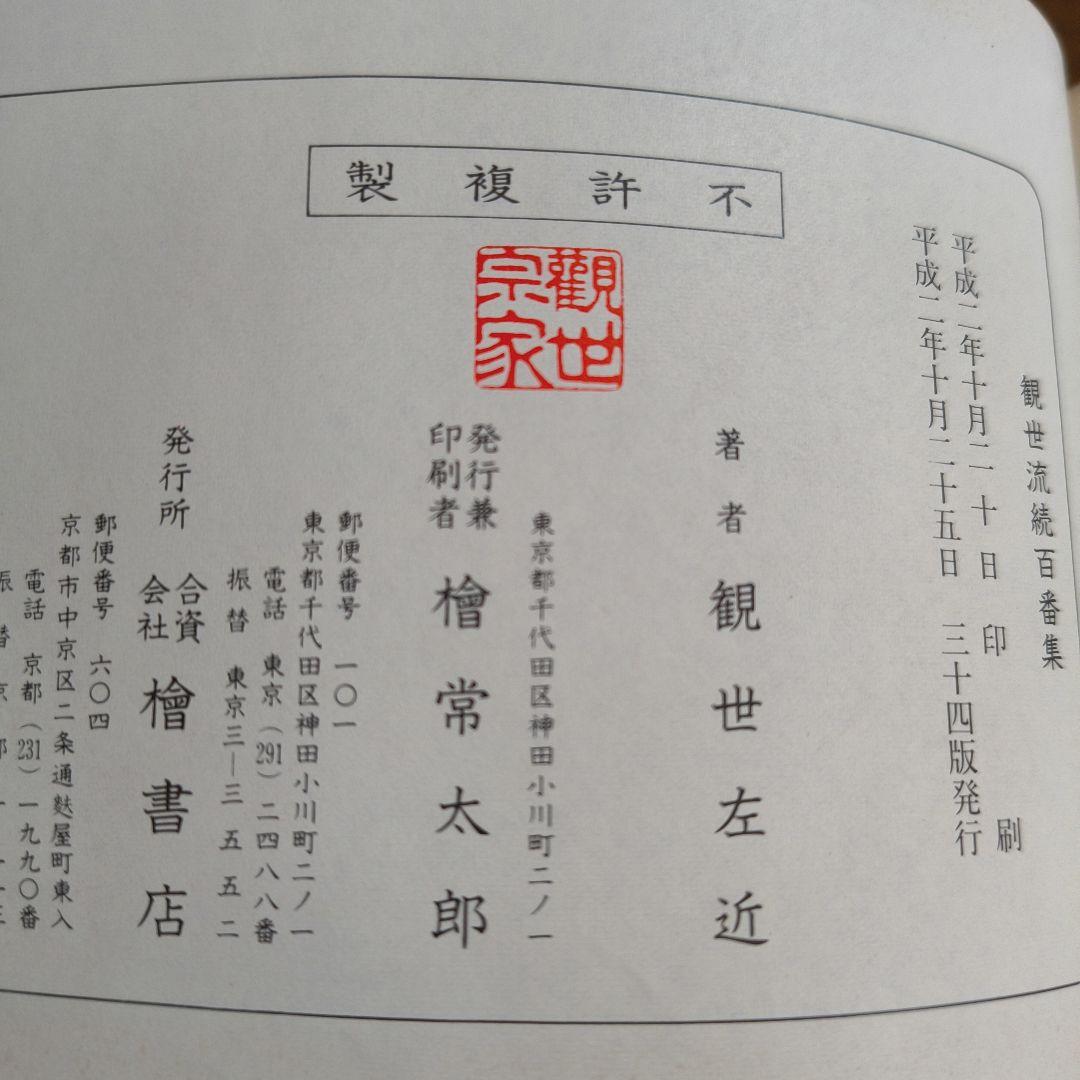 不許複製
観世流続百番集
平成二年十月二十日 印刷
平成二年十月二十五日 三十四版発行
觀世宗家
著者 観世左近
東京都千代田区神田小川町二ノ一
発行兼印刷者 檜常太郎
郵便番号 一〇一
東京都千代田区神田小川町二ノ一
電話 東京(291)二四八八番
振替 東京三—三五五二
発行所 合資会社 檜書店
郵便番号 六〇四
京都市中京区二条通麩屋町東入
電話 京都(231)一九九〇番